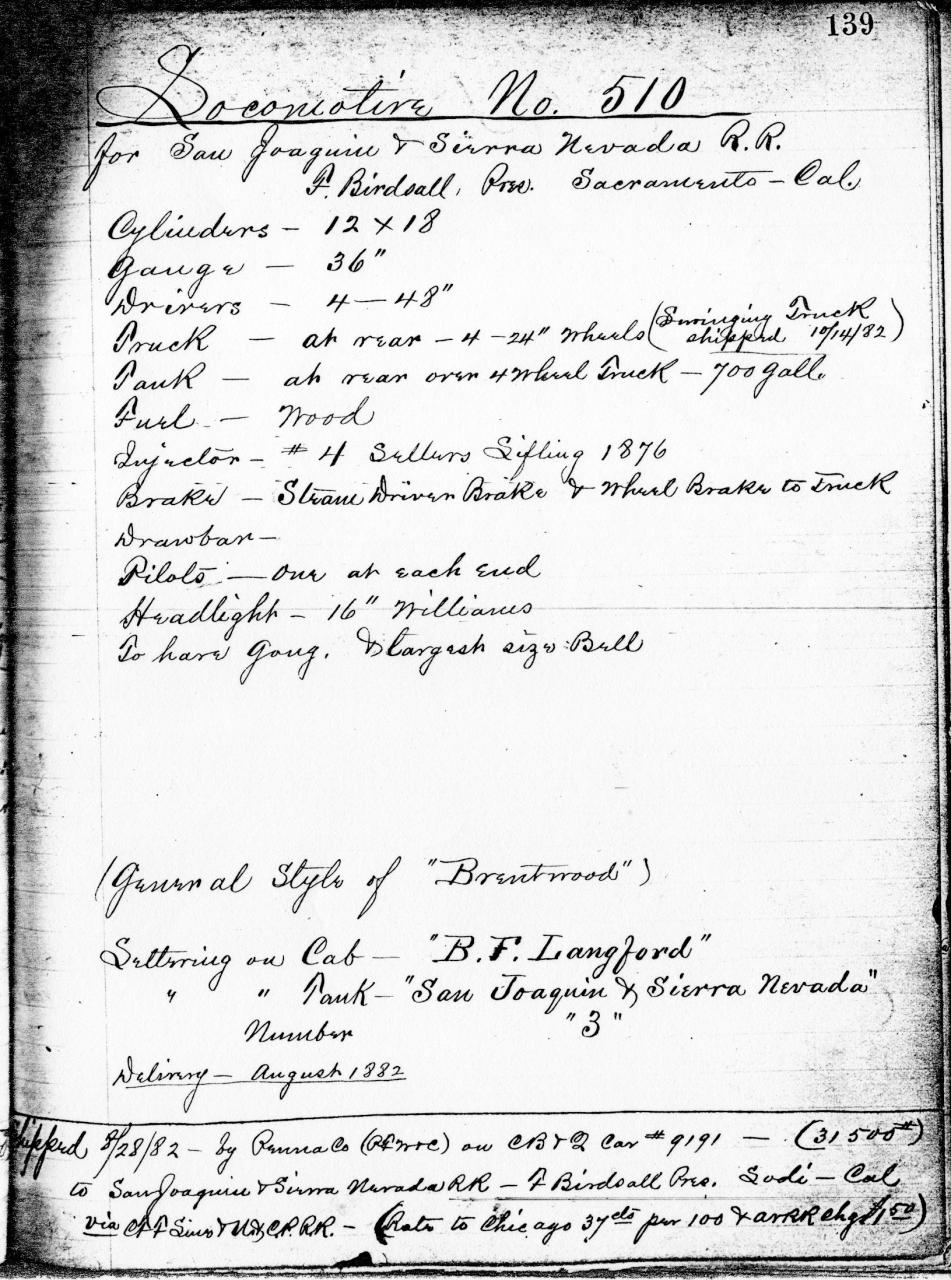 139
Locomotive No. 510
for San Joaquin & Sierra Nevada R.R.
F. Birdsall, Pres. Sacramento - Cal.
Cylinders - 12 x 18
Gauge - 36"
Drivers - 4 - 48"
Truck - at rear - 4 - 24" Wheels (Swinging Truck shipped 10/14/82)
Tank - at rear over 4 Wheel Truck - 700 gall.
Fuel - Wood
Injector - # 4 Sellers Lifting 1876
Brake - Steam Driver Brake & Wheel Brake to Truck
Drawbar -
Pilots - one at each end
Headlight - 16" Williams
To have Gong. & largest size Bell
(General Style of "Brentwood")
Lettering on Cab - "B.F. Langford"
" " Tank - "San Joaquin & Sierra Nevada"
Number "3"
Delivery - August 1882
Shipped 8/28/82 - by Penna Co (PFW&C) on CB&Q Car # 9191 - (31500#)
to San Joaquin & Sierra Nevada RR - F Birdsall Pres. Lodi - Cal
via Line & C.P.RR. - (Rate to Chicago 37cts per 100 & chgs 1.50)